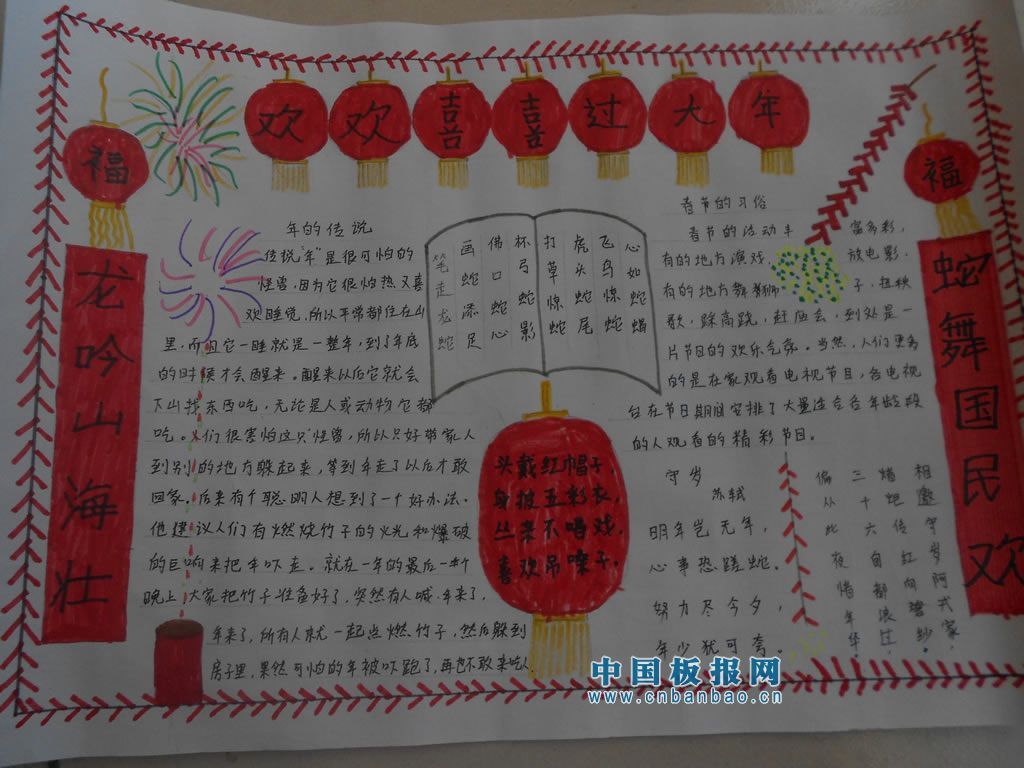 欢欢喜喜过大年
福
龙吟山海壮
福
蛇舞国民欢
年的传说
传说"年"是很可怕的
怪兽,因为它很怕热又喜
欢睡觉,所以平常都住在山
里,而且它一睡就是一整年,到了年底
的时候才会醒来。醒来以后它就会
下山找东西吃,无论是人或动物它都
吃。人们很害怕这只怪兽,所以只好带家人
到别的地方躲起来,等到年走了以后才敢
回家。后来有个聪明人想到了一个好办法。
他建议人们有燃烧竹子的火光和爆破
的巨响来把年吓走。就在一年的最后一个
晚上,大家把竹子准备好了,突然有人喊:年来了,
年来了,所有人就一起点燃竹子,然后躲到
房子里,果然可怕的年被吓跑了,再也不敢来吃人
笔走龙蛇
画蛇添足
佛口蛇心
杯弓蛇影
打草惊蛇
虎头蛇尾
飞鸟惊蛇
心如蛇蝎
头戴红帽子,
身披五彩衣,
从来不唱戏,
喜欢吊嗓子,
春节的习俗
春节的活动丰富多彩,
有的地方演戏,放电影,
有的地方舞狮子,扭秧
歌,踩高跷,赶庙会,到处是一
片节日的欢乐气象。当然,人们更多
的是在家观看电视节目,各电视
台在节日期间安排了大量适合各年龄段
的人观看的精彩节目。
守岁
苏轼
明年岂无年,
心事恐蹉蛇。
努力尽今夕,
年少犹可夸。
相邀守岁阿戎家,
蜡炬传红向碧纱,
三十六旬都浪过,
偏从此夜惜年华。
中国板报网
www.cnbanbao.cn